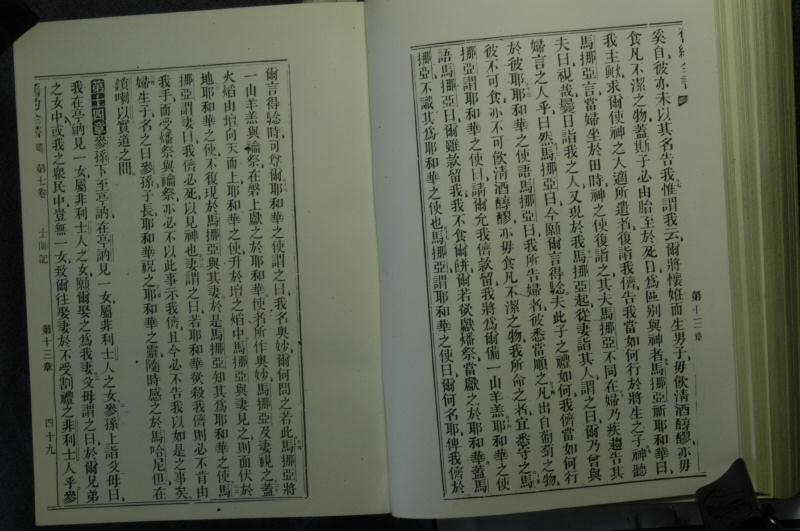 奚自彼亦未以其名告我惟謂我云爾將懷姙而生男子毋飲清酒醇醪亦毋
食凡不潔之物蓋斯子必由胎至於死日爲區別與神者馬挪亞祈耶和華曰
我主歟求爾使神之人適所遣者復詣我儕告我當如何行於將生之子神聽
馬挪亞言當婦坐於田時神之使復詣之其夫馬挪亞不同在婦乃疾趨告其
夫曰視哉曩日詣我之人又現於我馬挪亞起從妻詣其人謂之曰爾乃曾與
婦言之人乎曰然馬挪亞曰今願爾言得騐夫此子之禮如何我儕當如何行
於彼耶耶和華之使語馬挪亞曰我所告婦者彼悉當順之凡出自葡萄之物
彼不可食亦不可飲清酒醇醪亦毋食凡不潔之物我所命之者宜悉守之馬
挪亞謂耶和華之使曰請爾允我儕款留我將爲爾備一山羊羔耶和華之使
語馬挪亞曰爾雖款留我我不食爾餅爾若欲獻燔祭當獻之於耶和華蓋馬
挪亞不識其爲耶和華之使也馬挪亞謂耶和華之使曰爾何名耶俾我儕於
第十三章
爾言得騐時可尊爾耶和華之使謂之曰我名奧妙爾何問之若此馬挪亞將
一山羊羔與禴祭在磐上獻之於耶和華使者所作奧妙馬挪亞及妻視之蓋
火熖由壇向天而上耶和華之使升於壇之熖中馬挪亞與妻見之則面伏於
地耶和華之使不復現於馬挪亞與其妻於是馬挪亞知其爲耶和華之使馬
挪亞謂妻曰我儕必死以見神也妻謂之曰若耶和華欲殺我儕則必不肯由
我手而受燔祭與禴祭亦必不以此事示我儕且今必不告我以如是之事矣
婦生子名之曰參孫子長耶和華祝之耶和華之靈隨時感之於馬哈尼但在
瑣喇以實道之間
第十四章參孫下至亭訥在亭訥見一女屬非利士人之女參孫上詣父母曰
我在亭訥見一女屬非利士人之女願爾娶之爲我妻父母謂之曰於爾兄弟
之女中或我之衆民中豈無一女致爾往娶妻於不受割禮之非利士人乎參
第七卷 士師記 第十三章 四十九